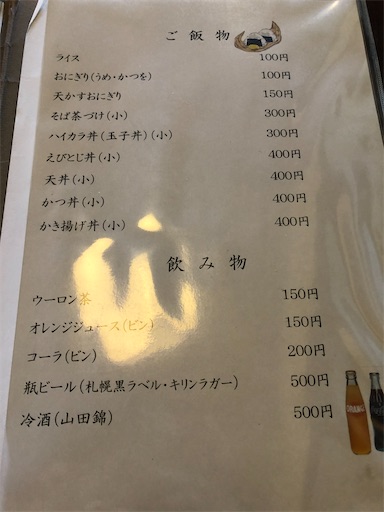 ご飯物
ライス 100円
おにぎり(うめ・かつを) 100円
天かすおにぎり 150円
そば茶づけ(小) 300円
ハイカラ丼(玉子丼)(小) 300円
えびとじ丼(小) 400円
天丼(小) 400円
かつ丼(小) 400円
かき揚げ丼(小) 400円
飲み物
ウーロン茶 150円
オレンジジュース(ビン) 150円
コーラ(ビン) 200円
瓶ビール(札幌黒ラベル・キリンラガー) 500円
冷酒(山田錦) 500円